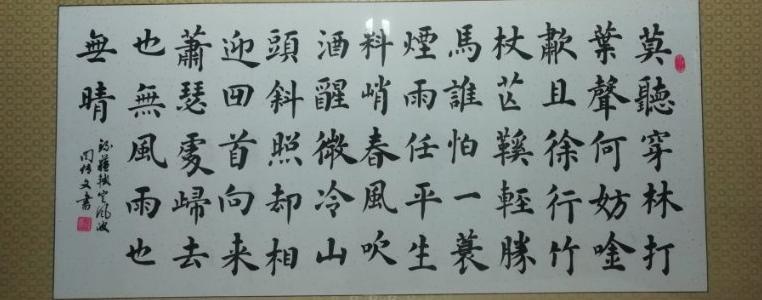 莫聽穿林打
葉聲何妨唫
歗且徐行竹
杖芒鞵輕勝
馬誰怕一蓑
煙雨任平生
料峭春風吹
酒醒微冷山
頭斜照却相
迎回首向来
蕭瑟處歸去
也無風雨也
無晴
錄蘇軾定風波
文書